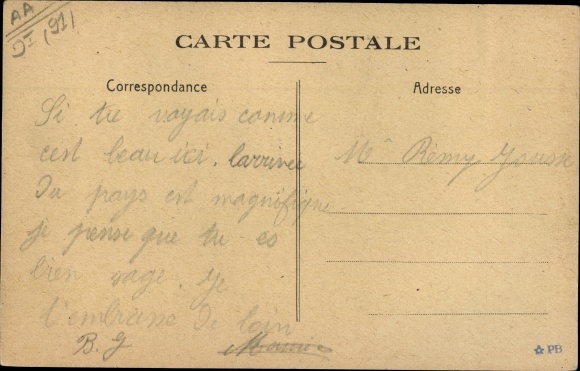 AA
(91)
CARTE POSTALE
Correspondance
Adresse
Si tu voyais comme
c'est beau ici. l'arrivée
du pays est magnifique
je pense que tu es
bien sage. Je
t'embrasse de loin
B. G
Mr Rémy
PB